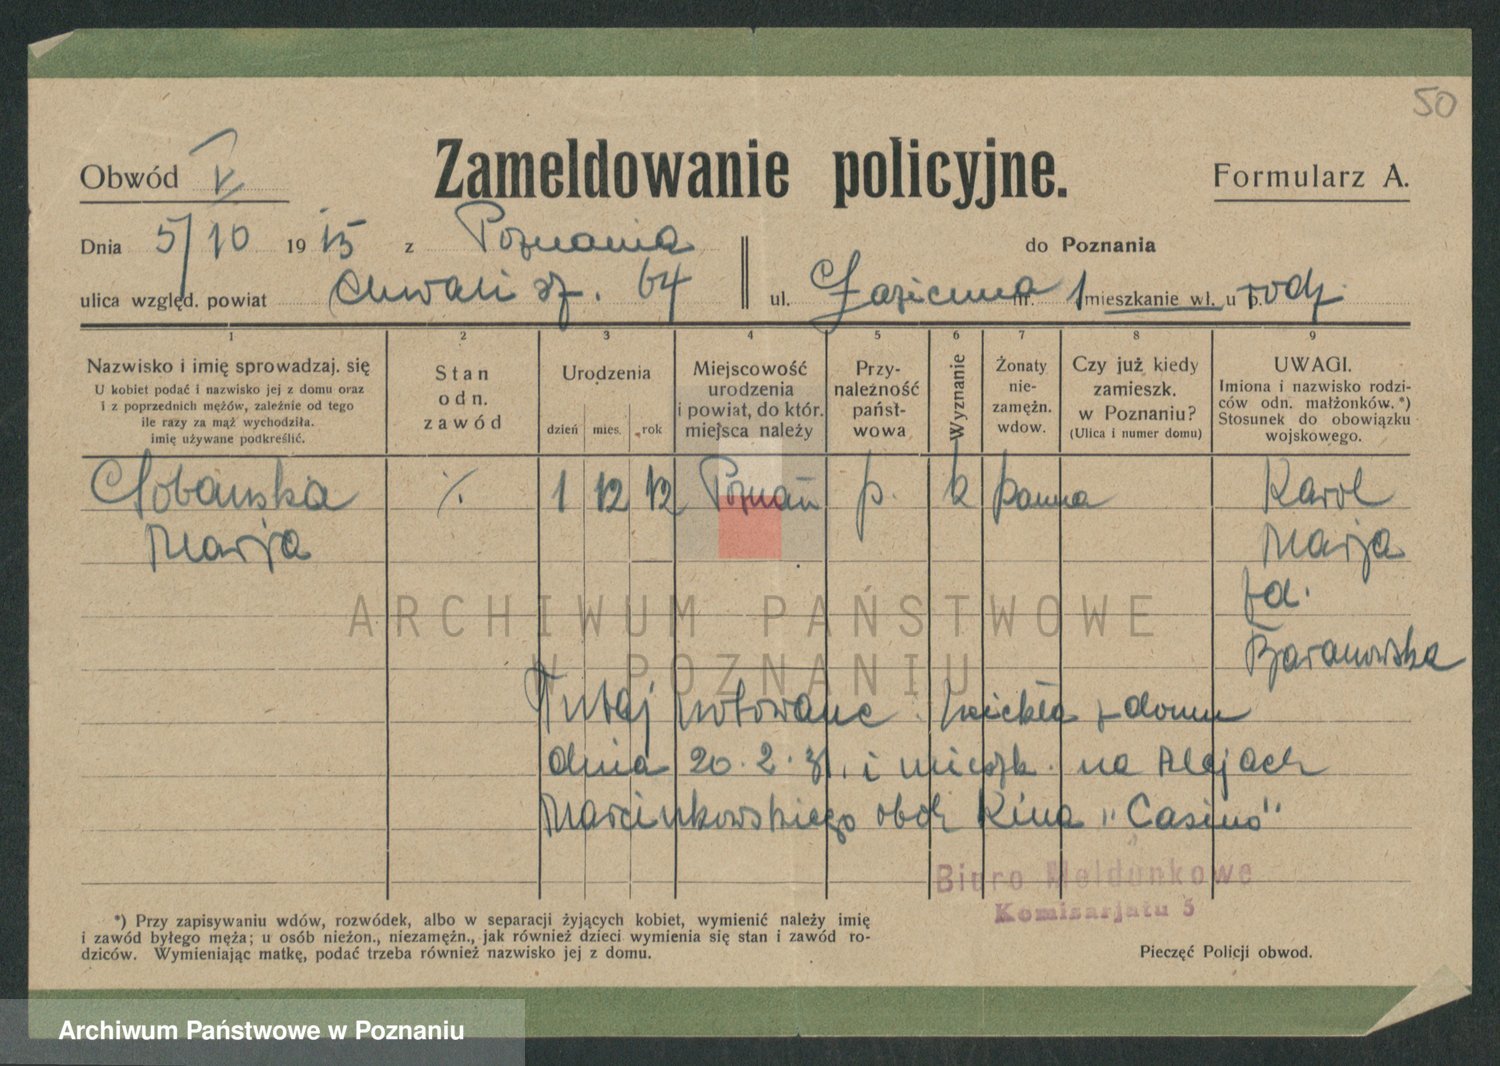 50
Zameldowanie policyjne.
Obwód V
Formularz A.
Dnia 5/10 19 15 z Poznania
do Poznania
ulica względ. powiat Chwalisz. 64
ul. nr. 1 mieszkanie wł. u p. rodz.
1 2 3 4 5 6 7 8 9
Nazwisko i imię sprowadzaj. się
U kobiet podać i nazwisko jej z domu oraz
i z poprzednich mężów, zależnie od tego
ile razy za mąż wychodziła.
imię używane podkreślić.
Stan
odn.
zawód
Urodzenia
dzień mies. rok
Miejscowość
urodzenia
i powiat, do któr.
miejsca należy
Przy-
należność
państ-
wowa
Wyznanie
Żonaty
nie-
zamężn.
wdow.
Czy już kiedy
zamieszk.
w Poznaniu?
(Ulica i numer domu)
UWAGI.
Imiona i nazwisko rodzi-
ców odn. małżonków.*)
Stosunek do obowiązku
wojskowego.
./. 1 12 12 Poznań p. k panna Karol
Marja Marja
zd.
Baranowska
ARCHIWUM PAŃSTWOWE
W POZNANIU
Tutaj notowane z domu
dnia 20.2.31. i mieszk. na Alejach
Marcinkowskiego obok Kina "Casino"
Biuro Meldunkowe
Komisarjatu 5
*) Przy zapisywaniu wdów, rozwódek, albo w separacji żyjących kobiet, wymienić należy imię
i zawód byłego męża; u osób nieżon., niezamężn., jak również dzieci wymienia się stan i zawód ro-
dziców. Wymieniając matkę, podać trzeba również nazwisko jej z domu.
Pieczęć Policji obwod.
Archiwum Państwowe w Poznaniu